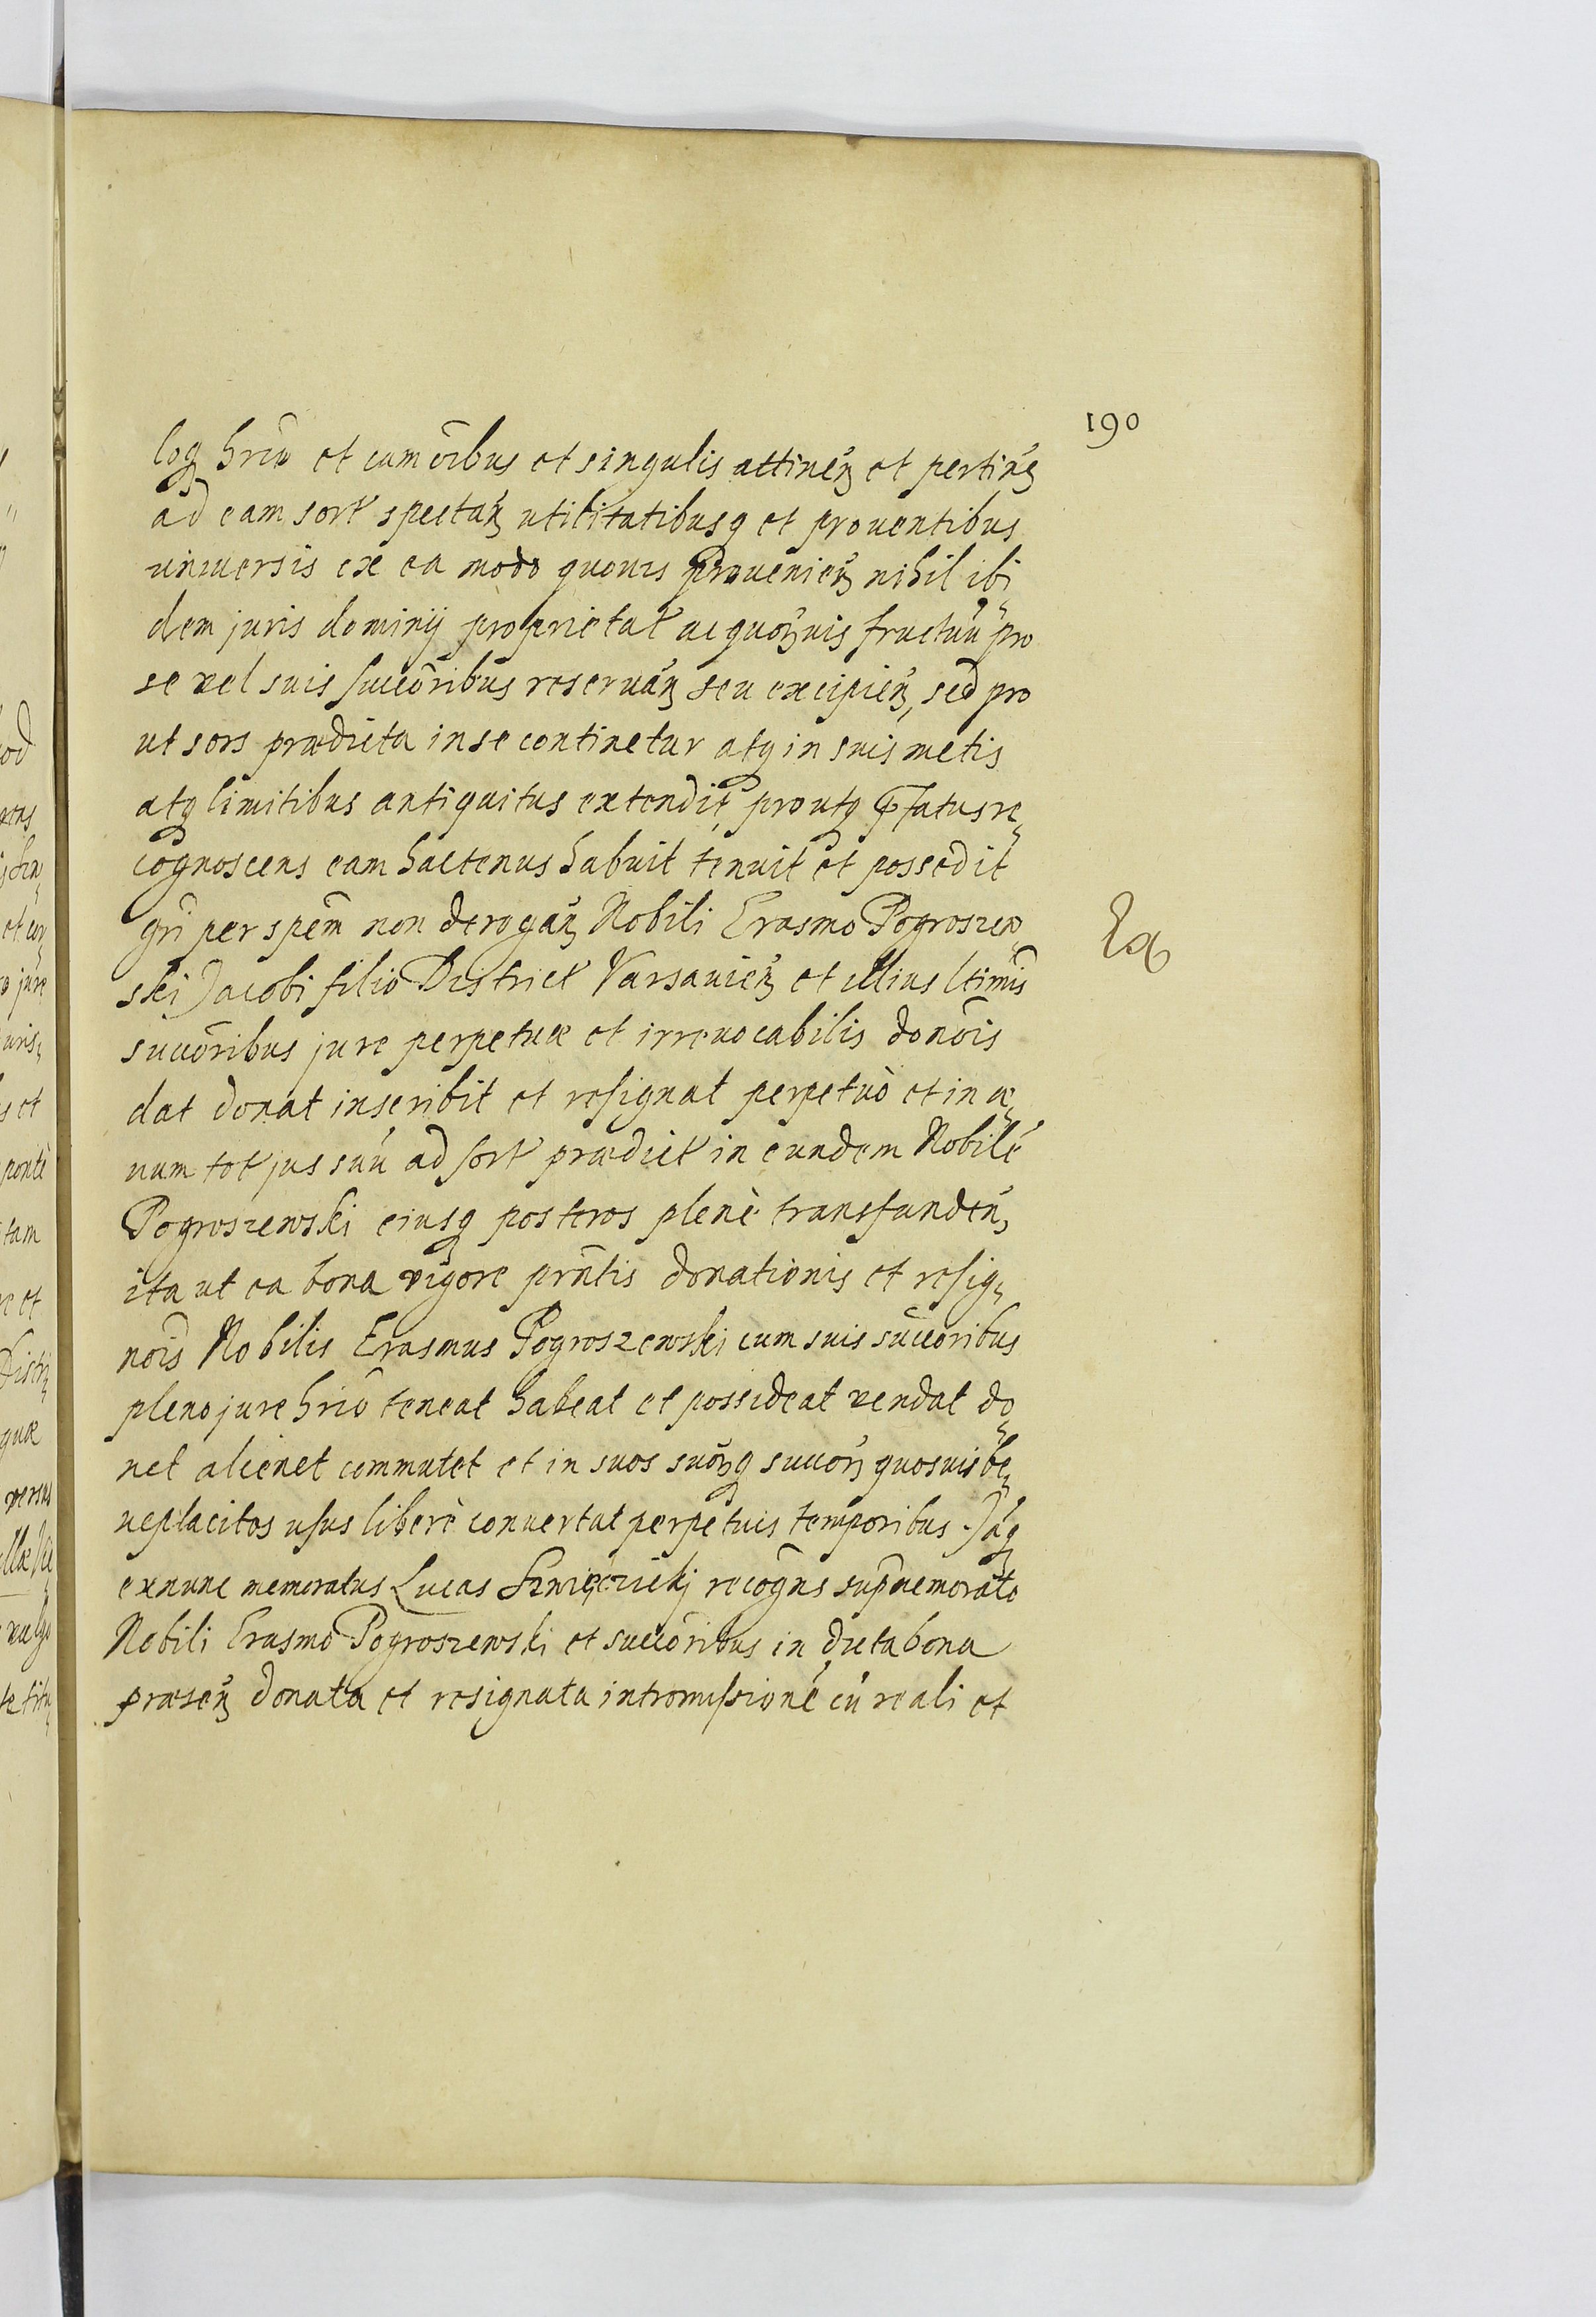 190
loq hrio et cum oibus et singulis attinen et pertinen
ad eam sort spectan utilitatibusq et prouentibus
uniuersis ex ea modo quouis prouenien nihil ibi
dem juris dominij proprietat ac quoruis fructuu pro
se vel suis succoribus reseruan seu excipien, sed pro
ut sors prædicta in se continetur atq in suis metis
atq limitibus antiquitus extendit, proutq pfatus re
cognoscens eam hactenus habuit tenuit et possedit
gri per spem non derogan Nobili Erasmo Pogroszew
ski Jacobi filio District Varsauien et illius ltimis
succoribus jure perpetuæ et irreuocabilis donois
dat donat inscribit et resignat perpetuò et in æ
uum tot jus suu ad sort prædict in eundem Nobile
Pogroszewski eiusq posteros plenè transfunden
ita ut ea bona vigore prntis donationis et resig
nois Nobilis Erasmus Pogroszewski cum suis succoribus
pleno jure hrio teneat habeat et possideat vendat do
net alienet commutet et in suos suorq succor quosuis be
neplacitos usus liberè conuertat perpetuis temporibus. Jaq
exnunc memoratus Lucas recogns supmemorato
Nobili Erasmo Pogroszewski et succoribus in dicta bona
præsen donata et resignata intromissione cu reali et